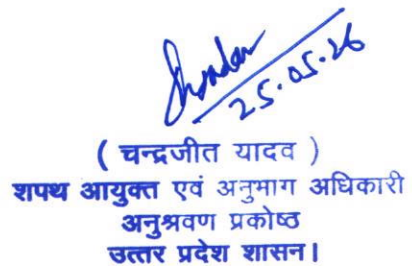 25.05.26
( चन्द्रजीत यादव )
शपथ आयुक्त एवं अनुभाग अधिकारी
अनुश्रवण प्रकोष्ठ
उत्तर प्रदेश शासन।